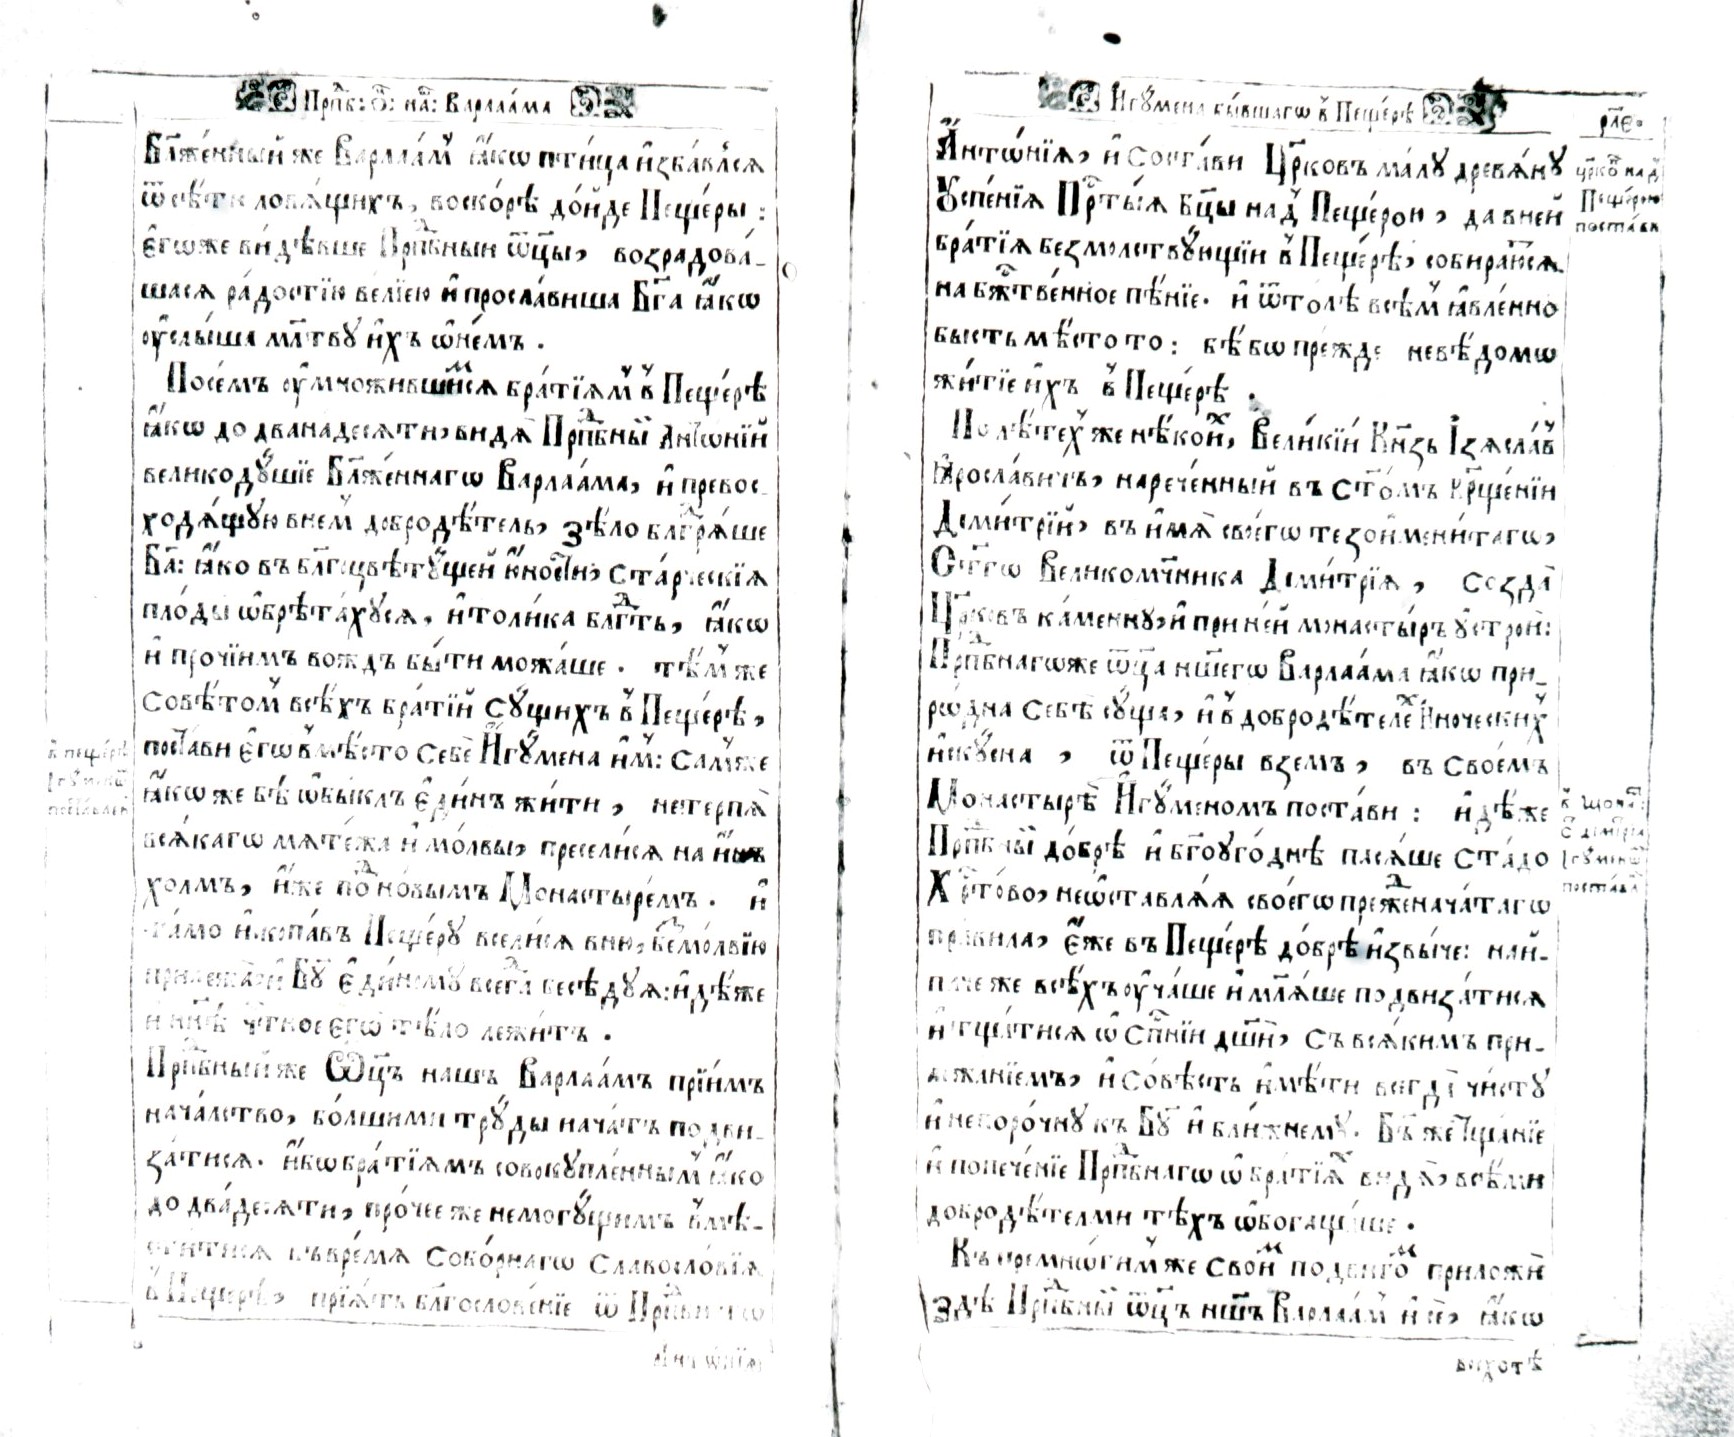 Прпⷣб: Ѻ҃: на҃: Варлаа́ма
Бл҃же́нный же Варлаа́мъ ꙗ҆́кѡ пти́ца и҆зба́влсѧ
ѿ сѣ́ти ловѧ́щихъ, воско́рѣ до́йде Пеще́ры :
є҆го́же ви́дѣвше Прпⷣбныи ѿц҃ы, возрадова́-
шасѧ ра́достїю ве́лїею и҆ просла́виша Бг҃а ꙗ҆́кѡ
оу҆слы́ша мл҃тву и҆́хъ ѡ҆не́мъ .
Посе́мъ оу҆мно́жившымсѧ бра́тїѧмъ въ Пеще́рѣ
ꙗ҆́кѡ до двана́десѧти, ви́дѧ Прпⷣбный Анто́нїй
великоду́шїе Бл҃же́ннагѡ Варлаа́ма, и҆ превос-
ходѧ́щꙋю внемъ добродѣ́тель, зѣ́ло блг҃дрѧ́ше
Бг҃а: ꙗ҆́ко въ блг҃оцвѣтꙋ́щей ю҆́ности, ста́рческїѧ
плоды̀ ѡ҆брѣта́хꙋсѧ, и҆ толи́ка блгⷣть, ꙗ҆́кѡ
и҆ про́чїимъ вождъ бы́ти можа́ше . тѣ́мъ же
совѣ́томъ всѣ́хъ бра́тїй сꙋ́щихъ въ Пеще́рѣ,
поста́ви є҆гѡ̀ вмѣ́сто себѐ И҆гꙋ́мена и҆̀мъ: са́мъже
ꙗ҆́кѡ же бѣ̀ ѡ҆бы́клъ є҆ди́нъ жи́ти , нетерпѧ̀
всѧ́кагѡ мѧте́жа и҆ мо́лвы, пресели́сѧ на и҆́нъ
хо́лмъ, и҆́же поⷣ но́вымъ Монастыре́мъ . и҆
та́мо и҆скопа́въ Пеще́рꙋ всели́сѧ в ню, безмо́лвїю
прилежа́ й Бг҃ꙋ є҆ди́номꙋ всегдⷣа̀ бесѣ́дꙋѧ: и҆дѣ́же
и҆ нн҃ѣ чⷭ҇тное є҆гѡ̀ тѣ́ло лежи́тъ .
Прпⷣбный же Ѿц҃ъ нашъ Варлаа́мъ прїи́мъ
нача́лство, бо́лшими трꙋды̀ нача́тъ подви-
за́тисѧ . и҆́бо бра́тїѧмъ совокꙋпле́ннымъ ꙗ҆́ко
до два́десѧти, про́чее же немогꙋ́щимъ вмѣ-
сти́тисѧ въ вре́мѧ собо́рнагѡ славосло́вїѧ
въ Пеще́рѣ, прїѧ́тъ блг҃ослове́нїе ѿ Прпⷣбнагѡ
Анто́нїѧ
въ пеще́рѣ
поста́влен
И҆гꙋ́мена бы́вшагѡ въ Пеще́рѣ
рл҃е.
Анто́нїѧ, и҆ соста́ви Цр҃ковъ ма́лꙋ древѧ́нꙋ
Оу҆спе́нїѧ Прⷭ҇ты́ѧ Бц҃ы надъ Пеще́рою, да в ней
бра́тїѧ безмо́лствꙋющїи въ Пеще́рѣ, собира́ютсѧ
на бж҃тве́нное пѣ́нїе. и҆ ѿто́лѣ всѣ́мъ ꙗ҆вле́нно
бысть мѣ́сто то : бѣ́ бо пре́жде невѣ́домѡ
жи́тїе и҆́хъ въ Пеще́рѣ .
По лѣ́техъ же нѣ́коихъ, Вели́кїй Кнѧ҃зь І҆зѧсла́въ
Ꙗ҆росла́вичъ, нарече́нный въ ст҃о́мъ Крⷭ҇ще́нїи
Дими́трїй, въ и҆́мѧ своегѡ̀ тезои҆мени́тагѡ,
Ст҃а́гѡ Великомч҃ника Дими́трїѧ , созда̀
Цр҃ковъ ка́меннꙋ, и҆ при не́й монасты́ръ оу҆строѝ:
Прпⷣбнагѡ же ѿц҃а нш҃егѡ Варлаа́ма ꙗ҆́кѡ при-
ро́дна себѣ̀ сꙋ́ща, и҆ въ добродѣ́телехъ и҆́ноческихъ
и҆скꙋ́сна , ѿ Пеще́ры взе́мъ , въ свое́мъ
Монастырѣ̀ И҆гꙋ́меномъ поста́ви : и҆дѣ́же
Прпⷣбный до́брѣ и҆ бг҃оуго́днѣ пасѧ́ше ста́до
Хрⷭ҇то́во, неѡ҆ставлѧ́ѧ своегѡ̀ преⷤде нача́тагѡ
пра́вила, є҆́же въ Пеще́рѣ до́брѣ и҆звы́че: най-
паче же всѣ́хъ оу҆ча́ше и҆ мл҃ѧ́ше подвиза́тисѧ
и҆ тща́тисѧ ѡ҆ сп҃се́нїи дш҃и, съ всѧ́кимъ при-
лѣжа́нїемъ, и҆ со́вѣсть и҆мѣ́ти всегда̀ чи́стꙋ
и҆ непоро́чнꙋ къ Бг҃ꙋ и҆ бли́жнемꙋ. Бѣ же тща́нїе
и҆ попече́нїе Прпⷣбнагѡ ѡ҆ бра́тїѧхъ ви́дѧ, всѣ́ми
добродѣ́телми тѣ́хъ ѡ҆богаща́ше .
Къ премно́гимъ же свои́мъ по́двигомъ приложѝ
здѣ̀ Прпⷣбный ѿц҃ъ нш҃ъ Варлаа́мъ и҆ сѐ, ꙗ҆́кѡ
внхотѣ
цр҃ковъ надъ
Пеще́рою
поста́ви
поста́вл